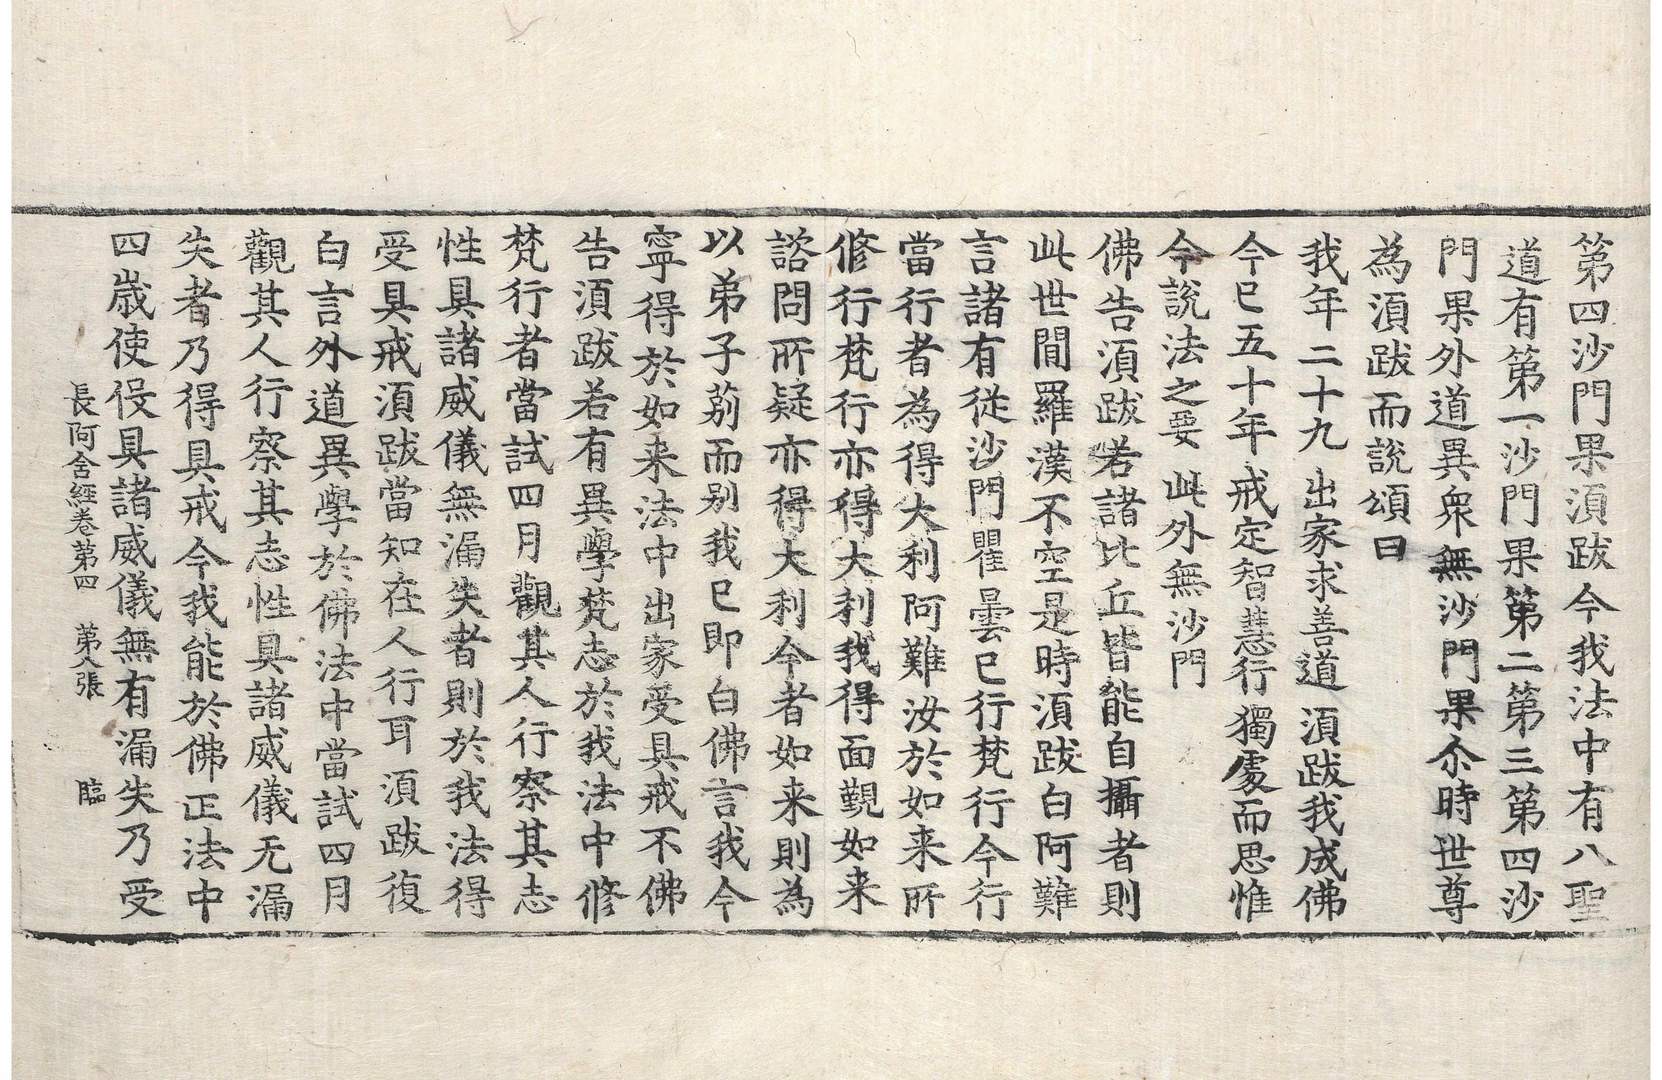 第四沙門果湏跋今我法中有八聖
道有第一沙門果第二第三第四沙
門果外道異衆無沙門果尒時世尊
為湏跋而說頌曰
我年二十九　出家求善道　湏跋我成佛
今已五十年　戒定智慧行　獨處而思惟
今說法之要　此外無沙門
佛告湏跋若諸比丘皆能自攝者則
此世間羅漢不空是時湏跋白阿難
言諸有從沙門瞿曇已行梵行今行
當行者為得大利阿難汝於如来所
修行梵行亦得大利我得面覲如来
諮問所疑亦得大利今者如来則為
以弟子莂而别我已即白佛言我今
寧得於如来法中出家受具戒不佛
告湏跋若有異學梵志於我法中修
梵行者當試四月觀其人行察其志
性具諸威儀無漏失者則於我法得
受具戒湏跋當知在人行耳湏跋復
白言外道異學於佛法中當試四月
觀其人行察其志性具諸威儀无漏
失者乃得具戒今我能於佛正法中
四歲使役具諸威儀無有漏失乃受
長阿含經卷第四　第八張　臨